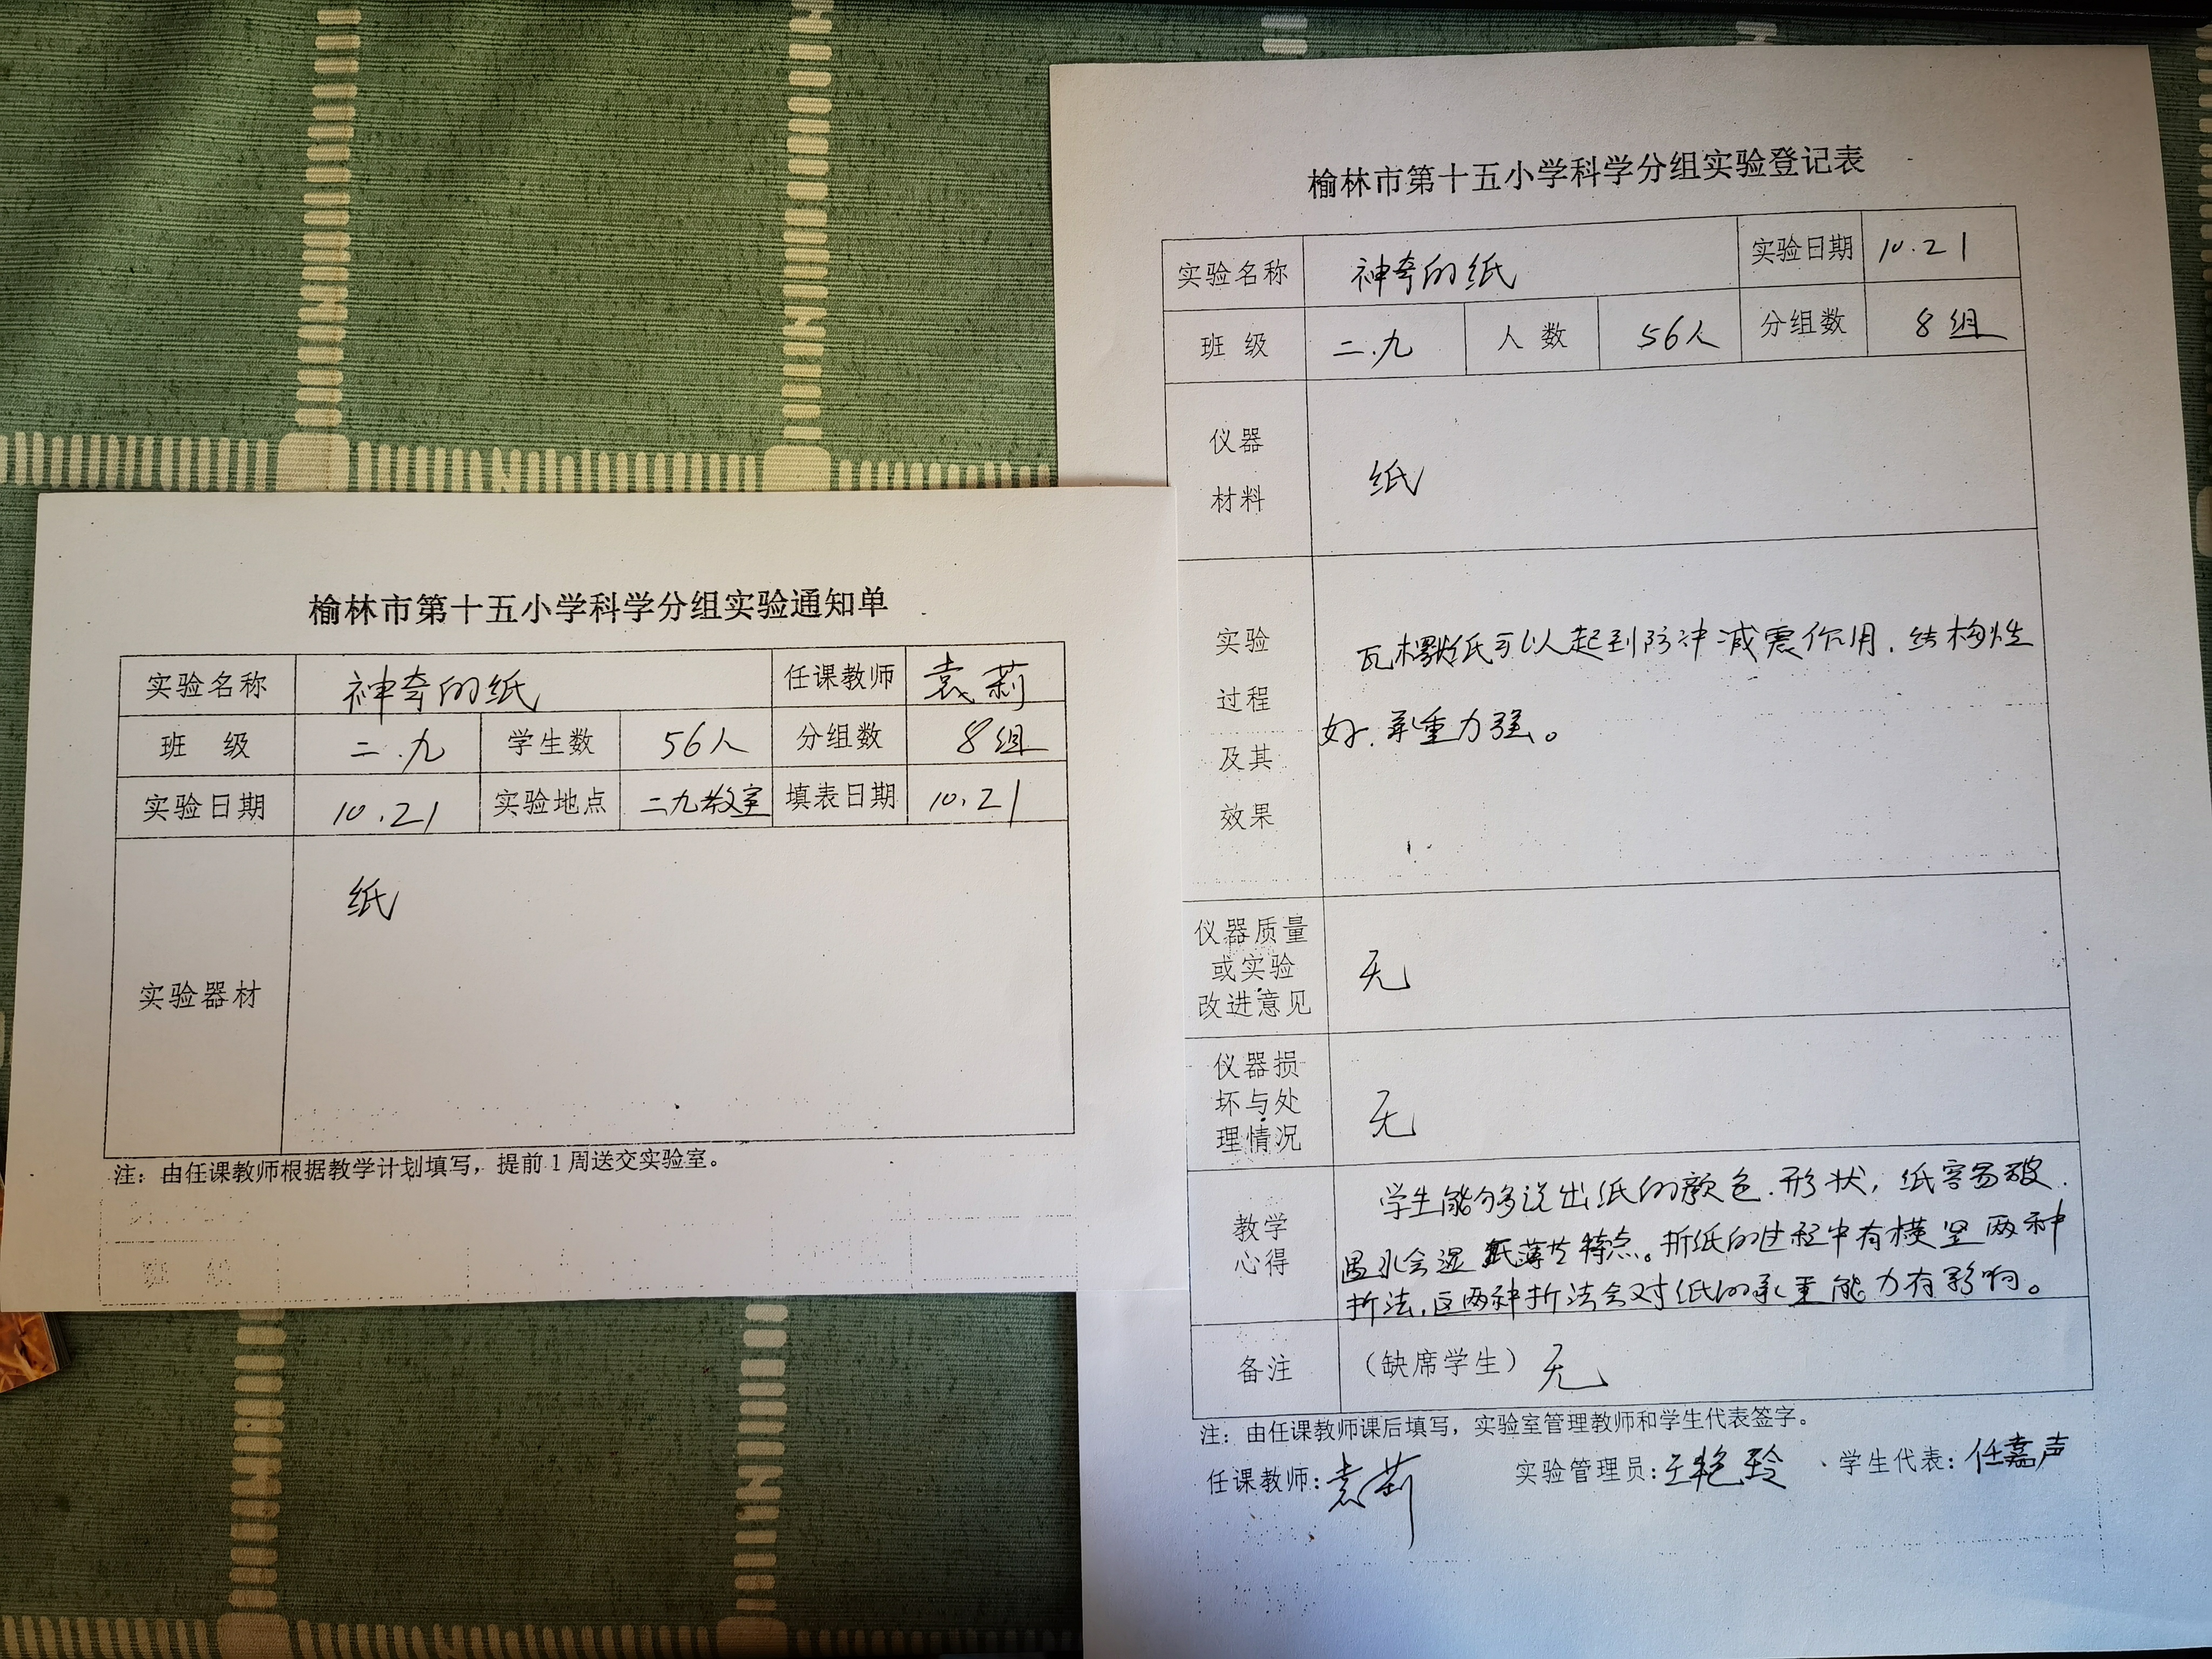 榆林市第十五小学科学分组实验通知单
实验名称 神奇的纸 任课教师 袁莉
班 级 二.九 学生数 56人 分组数 8组
实验日期 10.21 实验地点 二九教室 填表日期 10.21
实验器材 纸
注：由任课教师根据教学计划填写，提前1周送交实验室。
班 级
榆林市第十五小学科学分组实验登记表
实验名称 神奇的纸 实验日期 10.21
班 级 二.九 人 数 56人 分组数 8组
仪器
材料
纸
实验
过程
及其
效果
瓦楞纸可以起到防冲减震作用.结构性
好.承重力强。
仪器质量
或实验
改进意见
无
仪器损
坏与处
理情况
无
教学
心得
学生能够说出纸的颜色.形状，纸容易破.
遇水会湿 纸薄 特点。折纸的过程中有横竖两种
折法.这两种折法会对纸的承重能力有影响。
备注 （缺席学生）无
注：由任课教师课后填写，实验室管理教师和学生代表签字。
任课教师：袁莉 实验管理员：王艳玲 学生代表：任嘉声